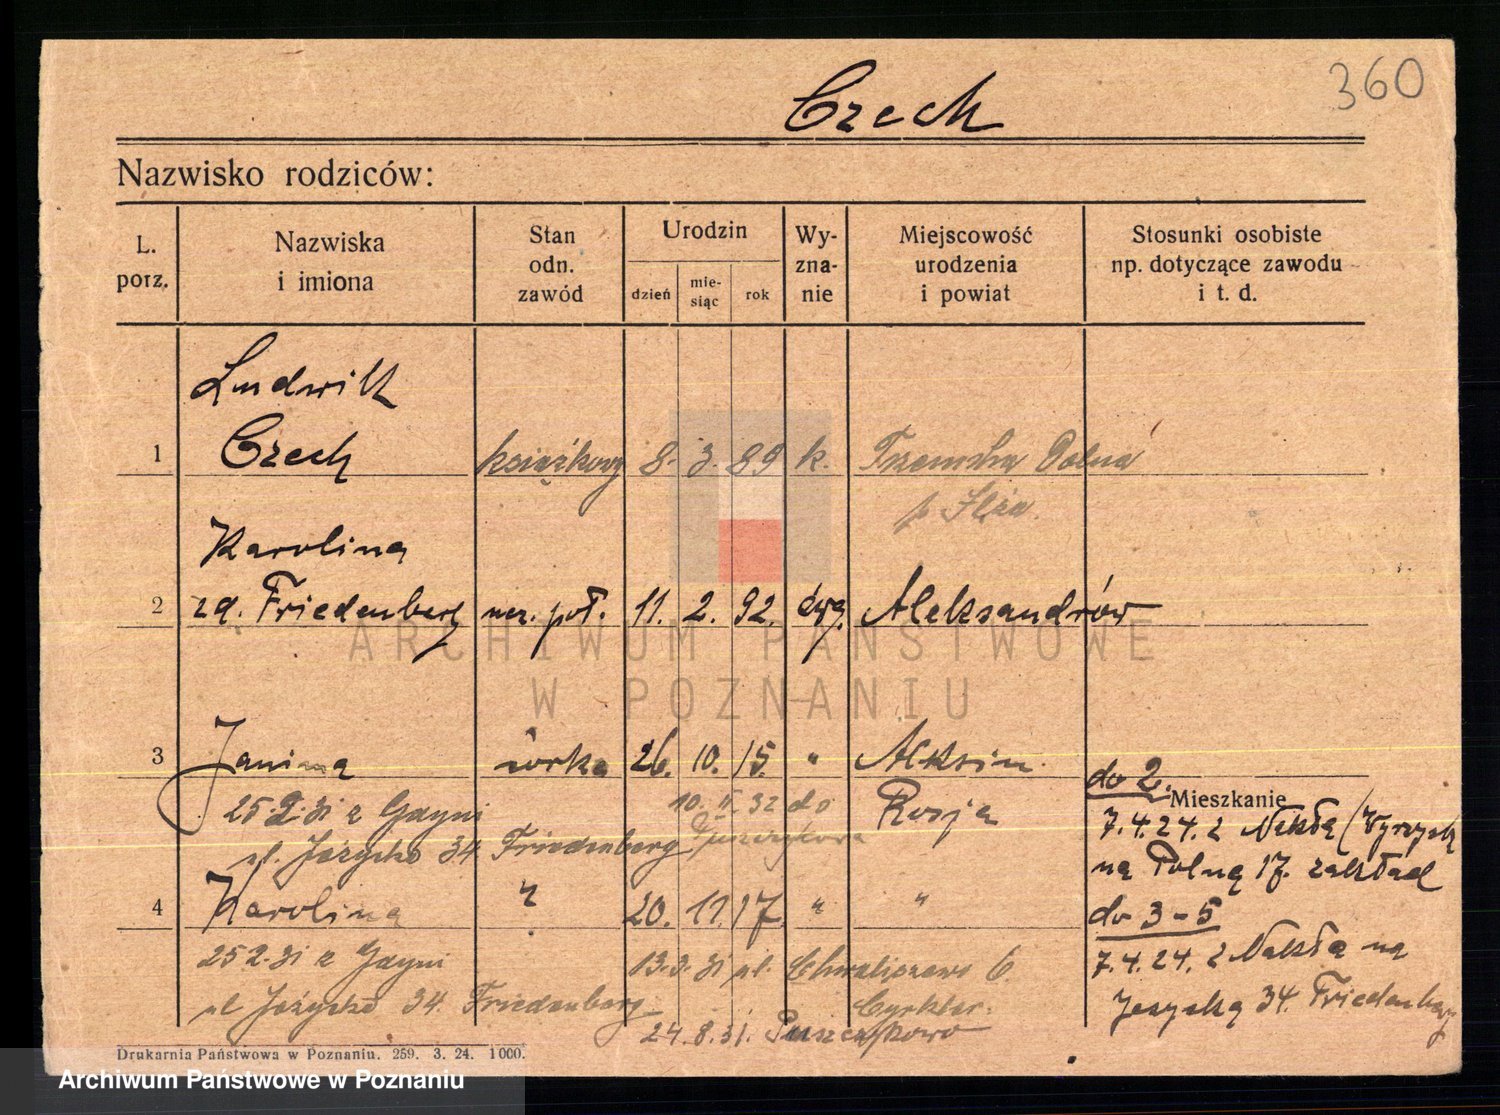 360
Czech
Nazwisko rodziców:
L. porz.
Nazwiska i imiona
Stan odn. zawód
Urodzin
dzień
mie- siąc
rok
Wy- zna- nie
Miejscowość urodzenia i powiat
Stosunki osobiste np. dotyczące zawodu i t. d.
Ludwik
1 Czech książkowy 8. 3. 89 k. Dolna
p. Iłża.
Karolina
2 zd. Friedenberg 11. 2. 92. ewg. Aleksandrów
ARCHIWUM PAŃSTWOWE
W POZNANIU
3 Janina córka 26. 10. 15. " Aleksin
do 2.
Mieszkanie
25.2.31 z Gdyni 10. 32 do Rosja
7.4.24. z Nakła (Wyrzysk
ul. Jeżycka 34 Friedenberg
na Polną 17. zakład
4 Karolina " 20. 11. 17. " "
do 3-5
25 2.31 z Gdyni 13.3.31 ul. Chwaliszewo 6
7.4.24. z Nakła na
ul Jeżycka 34. Friedenberg
Jeżycką 34. Friedenberg
24.8.31. Puszczykowo
Drukarnia Państwowa w Poznaniu. 259. 3. 24. 1000.
Archiwum Państwowe w Poznaniu